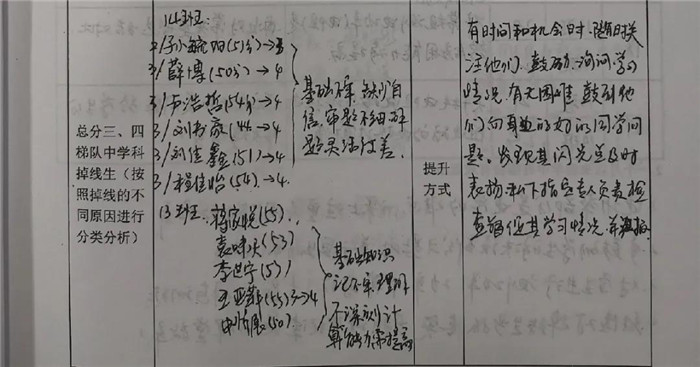 总分三、四
梯队中学科
掉线生（按
照掉线的不
同原因进行
分类分析）
14班:
2/孙毓阳(51分)→3
3/薛博(50分)→4
3/ 浩哲(54分)→4
3/刘书豪(44→4
3/刘佳鑫(51)→4
3/程佳怡(54)→4.
基础不牢,缺少自
信,审题不细,解
题灵活性差.
13班: 蒋家悦(55)
袁 (53)
李世宇(51)
王亚菲(55)3→4
申 展(50)
基础知识
记不牢,理解
不深刻,计
算能力需提高
提升
方式
有时间和机会时,随时关
注他们,鼓励、询问学习
情况,有无困难,鼓励他
们向身边的好的同学问
题。发现其闪光点及时
表扬,私下指定专人负责检
查督促其学习情况,并